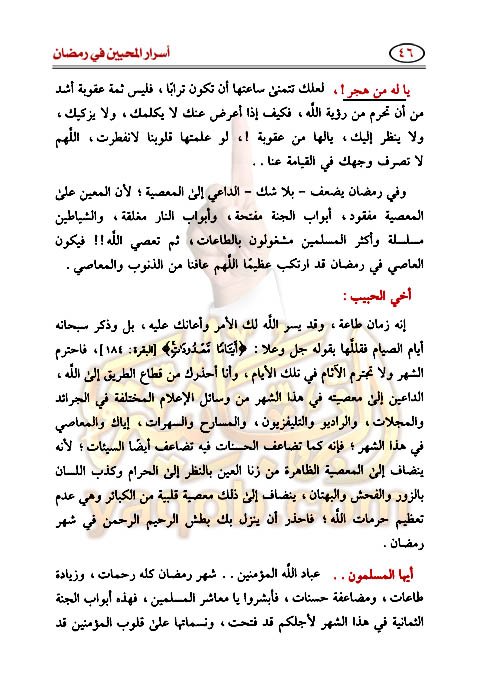 ٤٦
أسرار المحبين في رمضان
يا له من هجر!، لعلك تتمنى ساعتها أن تكون ترابًا، فليس ثمة عقوبة أشد
من أن تحرم من رؤية الله، فكيف إذا أعرض عنك لا يكلمك، ولا يزكيك،
ولا ينظر إليك، يالها من عقوبة!، لو علمتها قلوبنا لانفطرت، اللهم
لا تصرف وجهك في القيامة عنا..
وفي رمضان يضعف - بلا شك - الداعي إلى المعصية؛ لأن المعين على
المعصية مفقود، أبواب الجنة مفتحة، وأبواب النار مغلقة، والشياطين
مسلسلة وأكثر المسلمين مشغولون بالطاعات، ثم تعصي الله!! فيكون
العاصي في رمضان قد ارتكب عظيمًا اللهم عافنا من الذنوب والمعاصي.
أخي الحبيب:
إنه زمان طاعة، وقد يسر الله لك الأمر وأعانك عليه، بل وذكر سبحانه
أيام الصيام فقللها بقوله جل وعلا: ﴿أَيَّامًا مَّعْدُودَاتٍ﴾ [البقرة: ١٨٤]، فاحترم
الشهر ولا تجترم الآثام في تلك الأيام، وأنا أحذرك من قطاع الطريق إلى الله،
الداعين إلى معصيته في هذا الشهر من وسائل الإعلام المختلفة في الجرائد
والمجلات، والراديو والتليفزيون، والمسارح والسهرات، إياك والمعاصي
في هذا الشهر؛ فإنه كما تضاعف الحسنات فيه تضاعف أيضًا السيئات؛ لأنه
ينضاف إلى المعصية الظاهرة من زنا العين بالنظر إلى الحرام وكذب اللسان
بالزور والفحش والبهتان، ينضاف إلى ذلك معصية قلبية من الكبائر وهي عدم
تعظيم حرمات الله؛ فاحذر أن ينزل بك بطش الرحيم الرحمن في شهر
رمضان.
أيها المسلمون.. عباد الله المؤمنين.. شهر رمضان كله رحمات، وزيادة
طاعات، ومضاعفة حسنات، فأبشروا يا معاشر المسلمين، فهذه أبواب الجنة
الثمانية في هذا الشهر لأجلكم قد فتحت، ونسماتها على قلوب المؤمنين قد